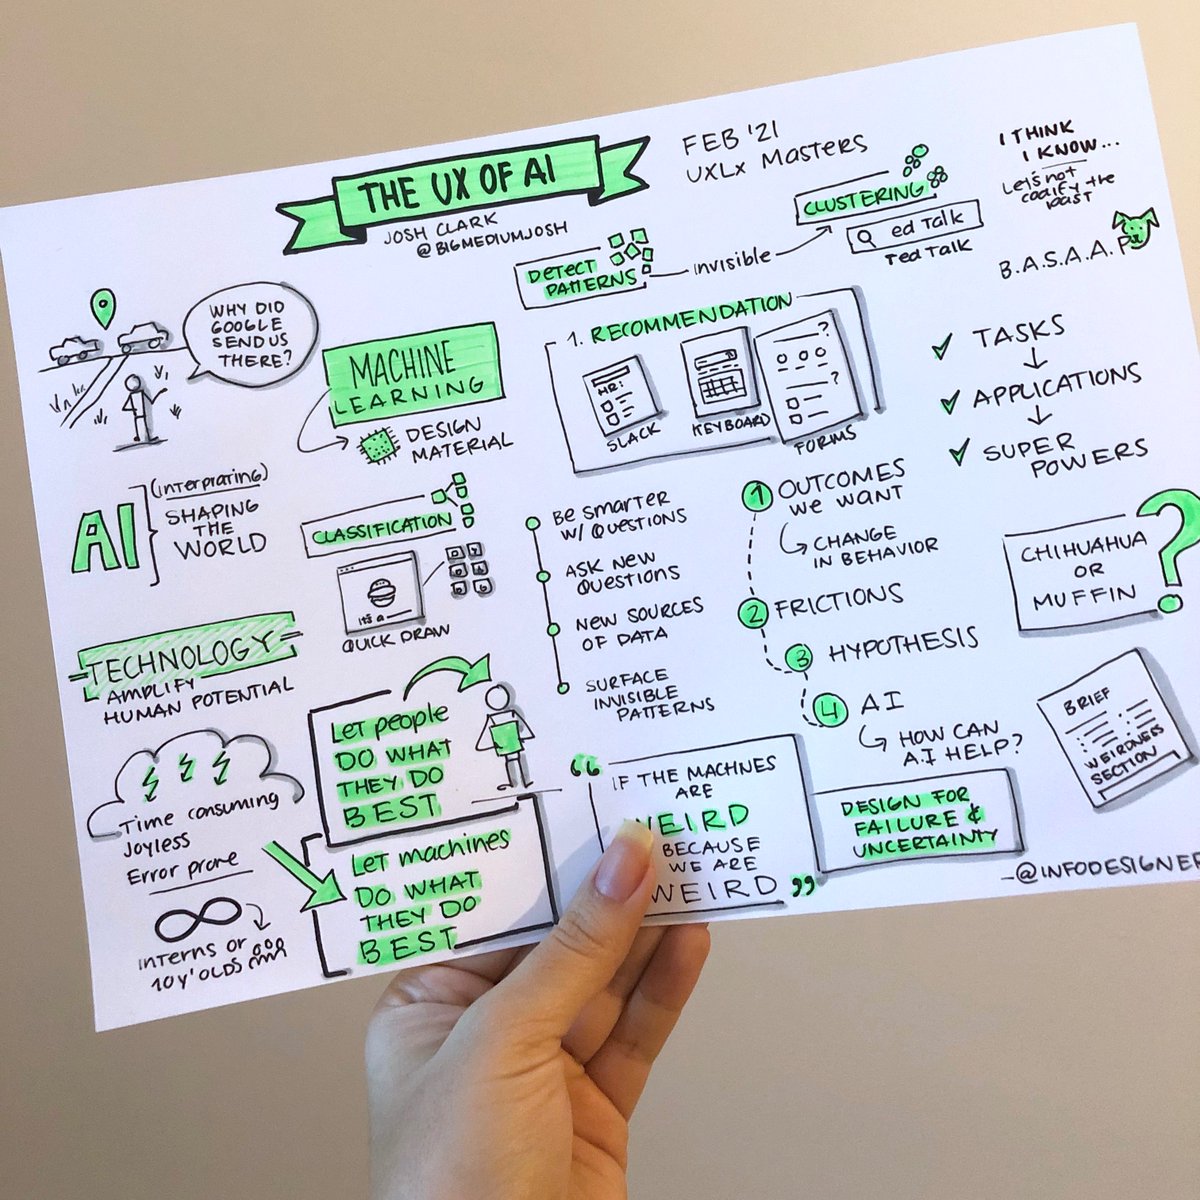 THE UX OF AI
JOSH CLARK
@BIGMEDIUMJOSH
FEB '21
UXLx Masters
I THINK
I KNOW...
Let's not
codify the
past
B.A.S.A.A.P
CLUSTERING
ed Talk
Ted Talk
DETECT
PATTERNS
invisible
WHY DID
GOOGLE
SEND US
THERE?
MACHINE
LEARNING
DESIGN
MATERIAL
1. RECOMMENDATION
HR:
SLACK
KEYBOARD
?
?
FORMS
TASKS
APPLICATIONS
SUPER
POWERS
AI
(interprating)
SHAPING
THE
WORLD
CLASSIFICATION
IT'S A
QUICK DRAW
Be smarter
w/ Questions
ASK NEW
QUESTIONS
NEW SOURCES
OF DATA
SURFACE
INVISIBLE
PATTERNS
1 OUTCOMES
WE WANT
CHANGE
IN BEHAVIOR
2 FRICTIONS
3 HYPOTHESIS
4 AI
HOW CAN
A.I HELP?
CHIHUAHUA
OR
MUFFIN
?
TECHNOLOGY
AMPLIFY
HUMAN POTENTIAL
Time consuming
Joyless
Error prone
Interns or
10 y'OLDS
Let people
DO WHAT
THEY DO
BEST
Let machines
DO WHAT
THEY DO
BEST
“IF THE MACHNES
ARE
WEIRD
BECAUSE
WE ARE
WEIRD”
DESIGN FOR
FAILURE &
UNCERTAINTY
BRIEF
WEIRDNESS
SECTION
-@INFODESIGNER